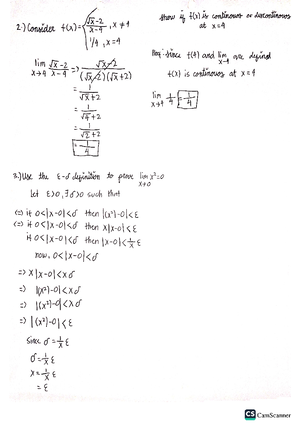 2.) Consider f(x) = { √x-2 / x-4 , x ≠ 4
1/4 , x = 4
Show if f(x) is continuous or discontinuous
at x=4
lim x→4 √x-2 / x-4 => √x-2 / (√x-2)(√x+2)
= 1 / √x+2
= 1 / √4+2
= 1 / √2+2
= 1/4
since f(4) and lim x→4 are defined
f(x) is continuous at x=4
lim x→4 1/4 = 1/4
Use the ε-δ definition to prove lim x→0 x²=0
let ε>0, ∃ δ>0 such that
(=) if 0<|x-0|<δ then |(x²)-0|<ε
(=) if 0<|x-0|<δ then x|x-0|<ε
if 0<|x-0|<δ then |x-0|<1/x ε
now, 0<|x-0|<δ
=> x|x-0|<xδ
=> |(x²)-0|<xδ
=> |(x²)-0|<xδ
=> |(x²)-0|<ε
Since δ=1/x ε
δ=1/x ε
x=1/x ε
= ε
CS CamScanner